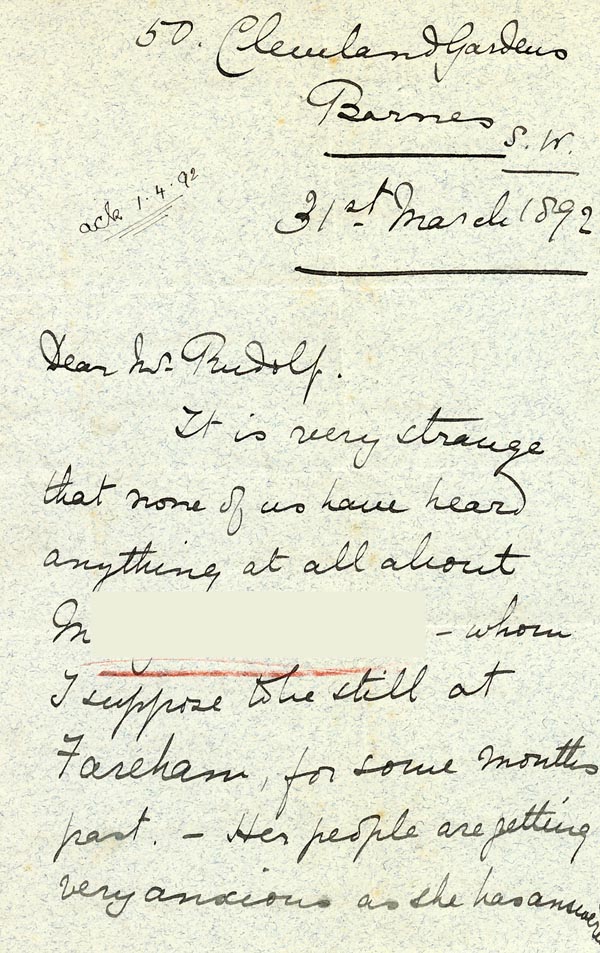 50. Cleveland Gardens
Barnes S.W.
ack 1.4.92
31st March 1892
Dear Mr Rudolf.
It is very strange
that none of us have heard
anything at all about
M - whom
I suppose to be still at
Fareham, for some months
past. - Her people are getting
very anxious as she has answered